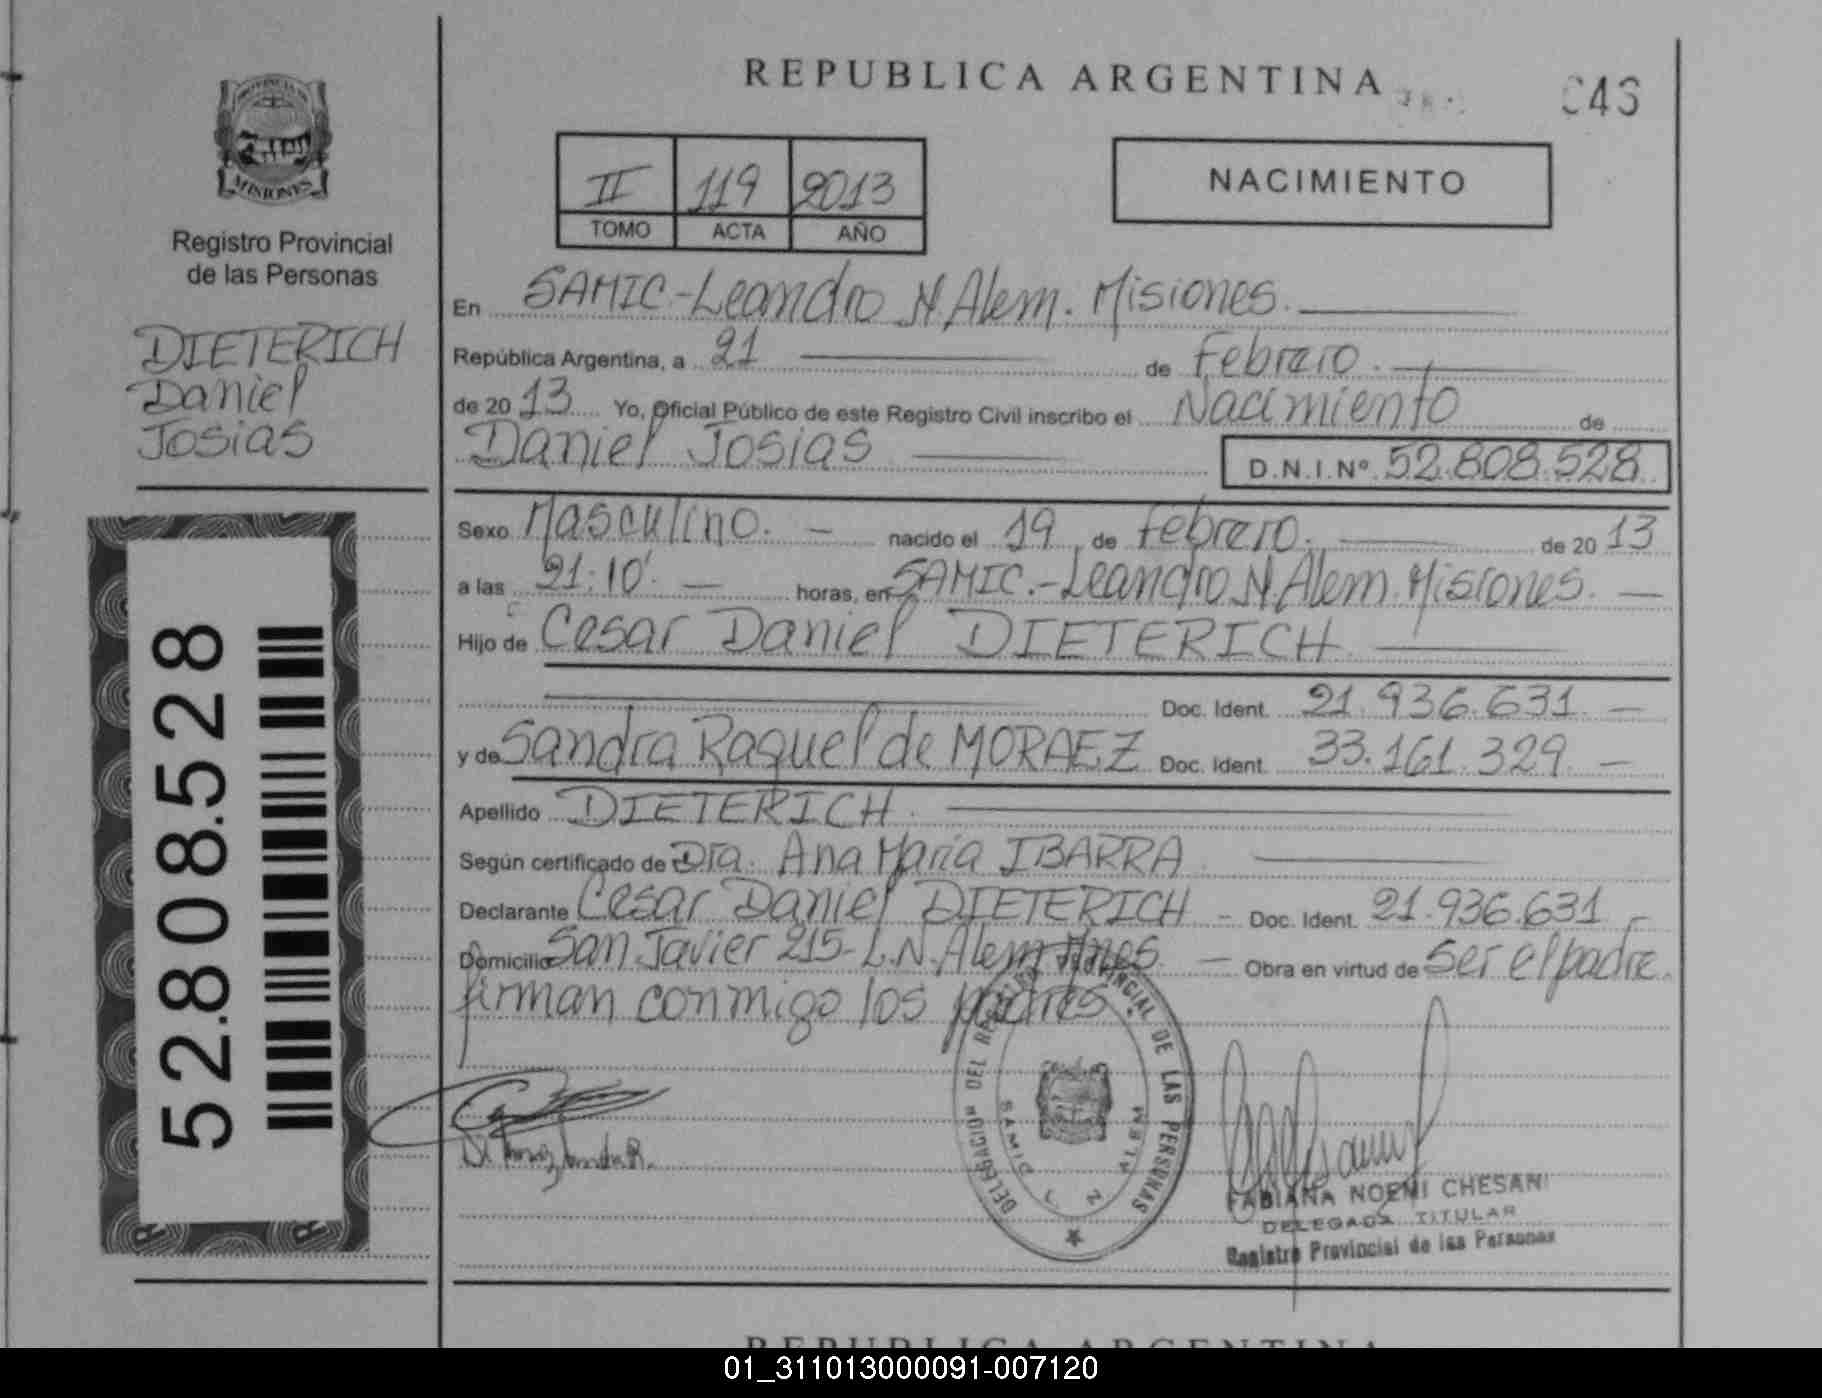 REPUBLICA ARGENTINA
043
PROVINCIA DE
MISIONES
Registro Provincial
de las Personas
DIETERICH
Daniel
Josias
52.808.528
II 119 2013
TOMO ACTA AÑO
NACIMIENTO
En SAMIC-Leandro N. Alem. Misiones.
República Argentina, a 21 de Febrero.
de 20 13 Yo, Oficial Público de este Registro Civil inscribo el Nacimiento de
Daniel Josias D.N.I.Nº 52.808.528
Sexo Masculino. - nacido el 19 de febrero. de 20 13
a las 21:10'. - horas, en SAMIC.-Leandro N Alem. Misiones. -
Hijo de Cesar Daniel DIETERICH
Doc. Ident. 21.936.631. -
y de Sandra Raquel de MORAEZ Doc. Ident. 33.161.329. -
Apellido DIETERICH.
Según certificado de Dra. Ana María IBARRA.
Declarante Cesar Daniel DIETERICH - Doc. Ident. 21.936.631 -
Domicilio San Javier 215-L.N.Alem Mnes. - Obra en virtud de ser el padre.
firman conmigo los padres
DELEGACION DEL REGISTRO PROVINCIAL DE LAS PERSONAS
SAMIC L N ALEM
FABIANA NOEMI CHESANI
DELEGADA TITULAR
Registro Provincial de las Personas
REPUBLICA ARGENTINA
01_311013000091-007120